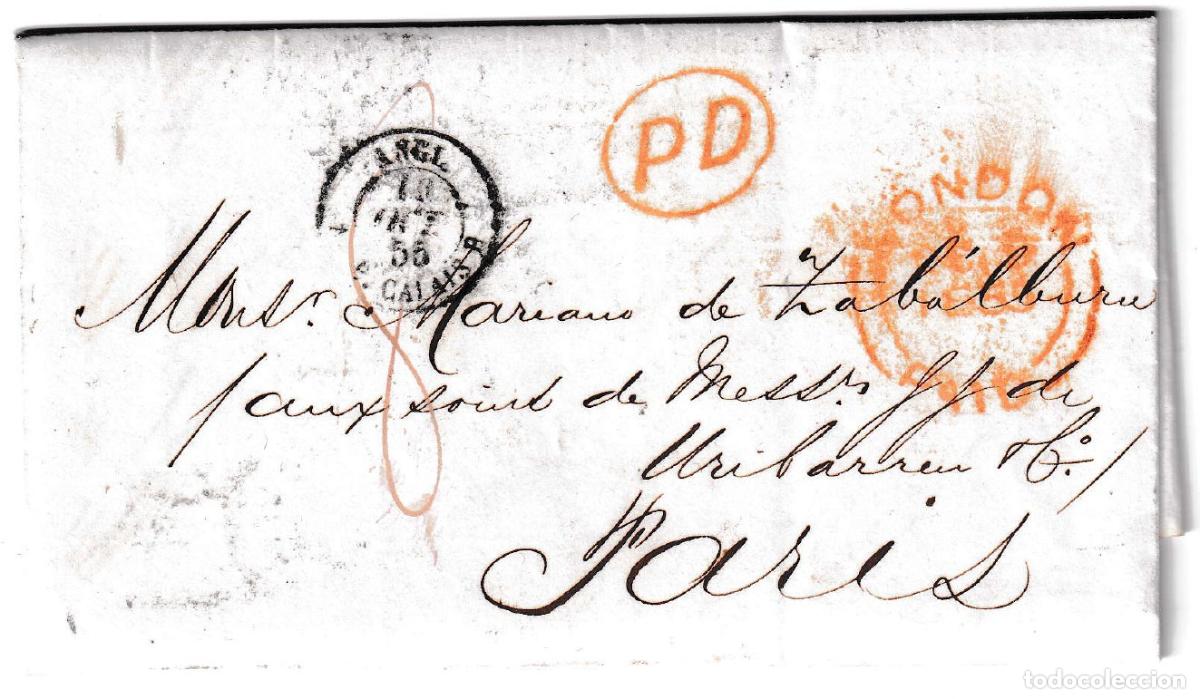 PD
ANGL.
55
CALAIS
LONDON
PAID
8
Monsr. Mariano de Zabálburu
/aux soins de Messrs J J de
Uribarren & Co./
Paris
todocoleccion